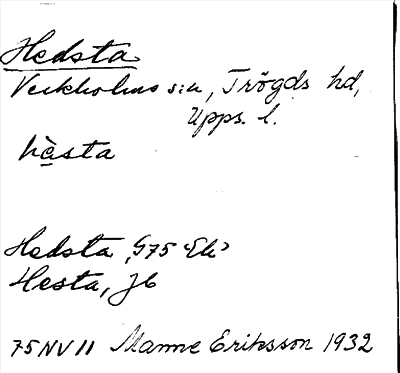 Hedsta
Veckholms s:n, Trögds hd,
Upps. l.
hä̀sta
Hedsta, G75 "Ek"
Hesta, Jb
75 NV 11 Manne Eriksson 1932